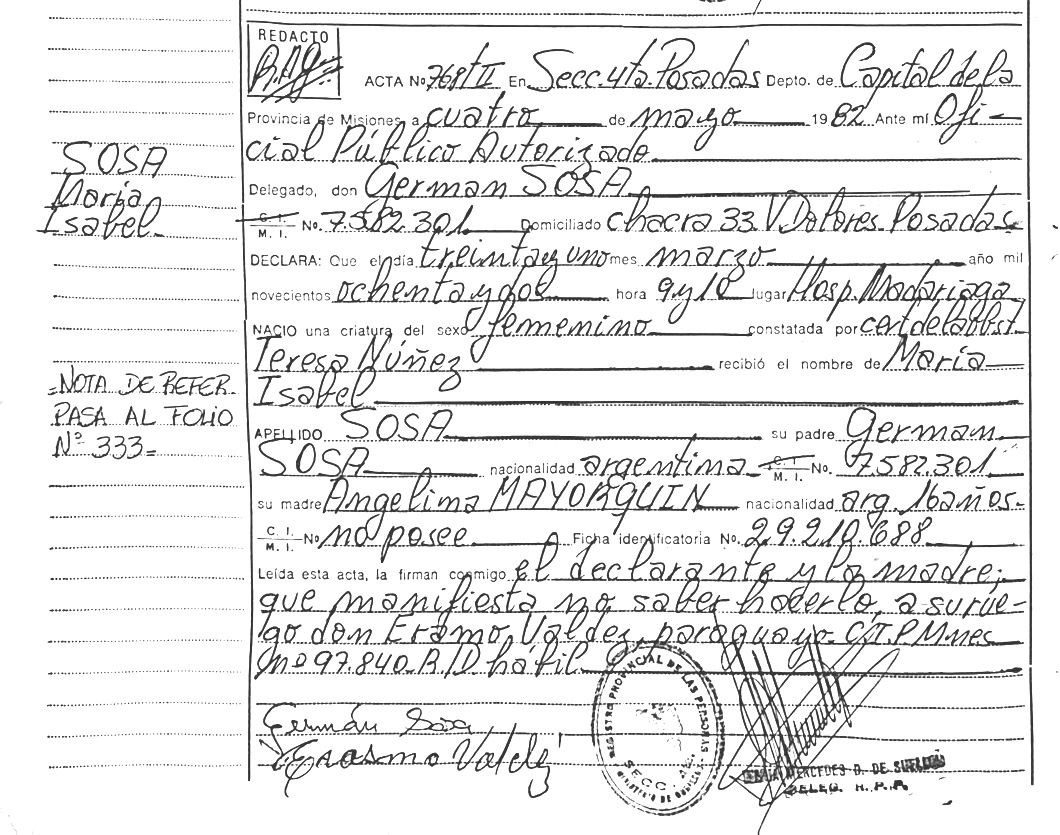 REDACTO
ACTA No. 768 t II En Secc. 4ta. Posadas Depto. de Capital de la
Provincia de Misiones, a cuatro de mayo 1982 Ante mi Ofi-
cial Público Autorizado
Delegado, don German SOSA
C. I. M. I. No. 7.582.301 Domiciliado chacra 33 V. Dolores Posadas
DECLARA: Que el día treinta y uno mes marzo año mil
novecientos ochenta y dos hora 9 y 10 lugar Hosp. Madariaga
NACIO una criatura del sexo femenino constatada por cert de la obst.
Teresa Núñez recibió el nombre de María
Isabel
APELLIDO SOSA su padre German
SOSA nacionalidad argentina C. I. M. I. No. 7.582.301
su madre Angelina MAYORQUIN nacionalidad arg. 16 años-
C. I. M. I. No no posee Ficha identificatoria No. 29.210.688
Leída esta acta, la firman conmigo el declarante y la madre;
que manifiesta no saber hacerlo, a su rue-
go don Eramo Valdez, paraguayo C.I.P.Mnes
nº 97.840 R/D. habil
Germán Sosa
Erasmo Valdéz
REGISTRO PROVINCIAL DE LAS PERSONAS
SECC. 4ta.
MERCEDES D. DE
DELEG. R. P. P.
SOSA
María
Isabel
=NOTA DE REFER-
PASA AL FOLIO
Nº 333=